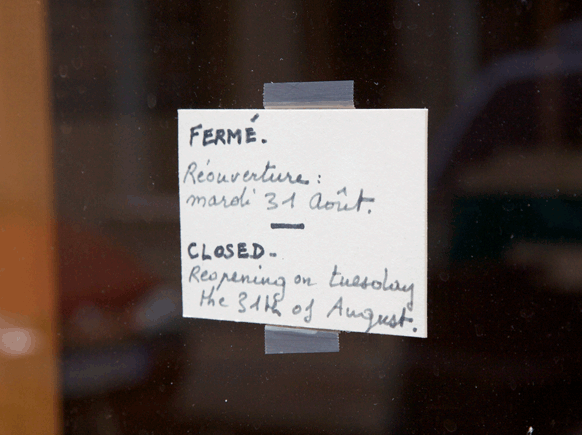 FERMÉ.
Réouverture :
mardi 31 Août.
CLOSED-
Reopening on tuesday
the 31th of August.